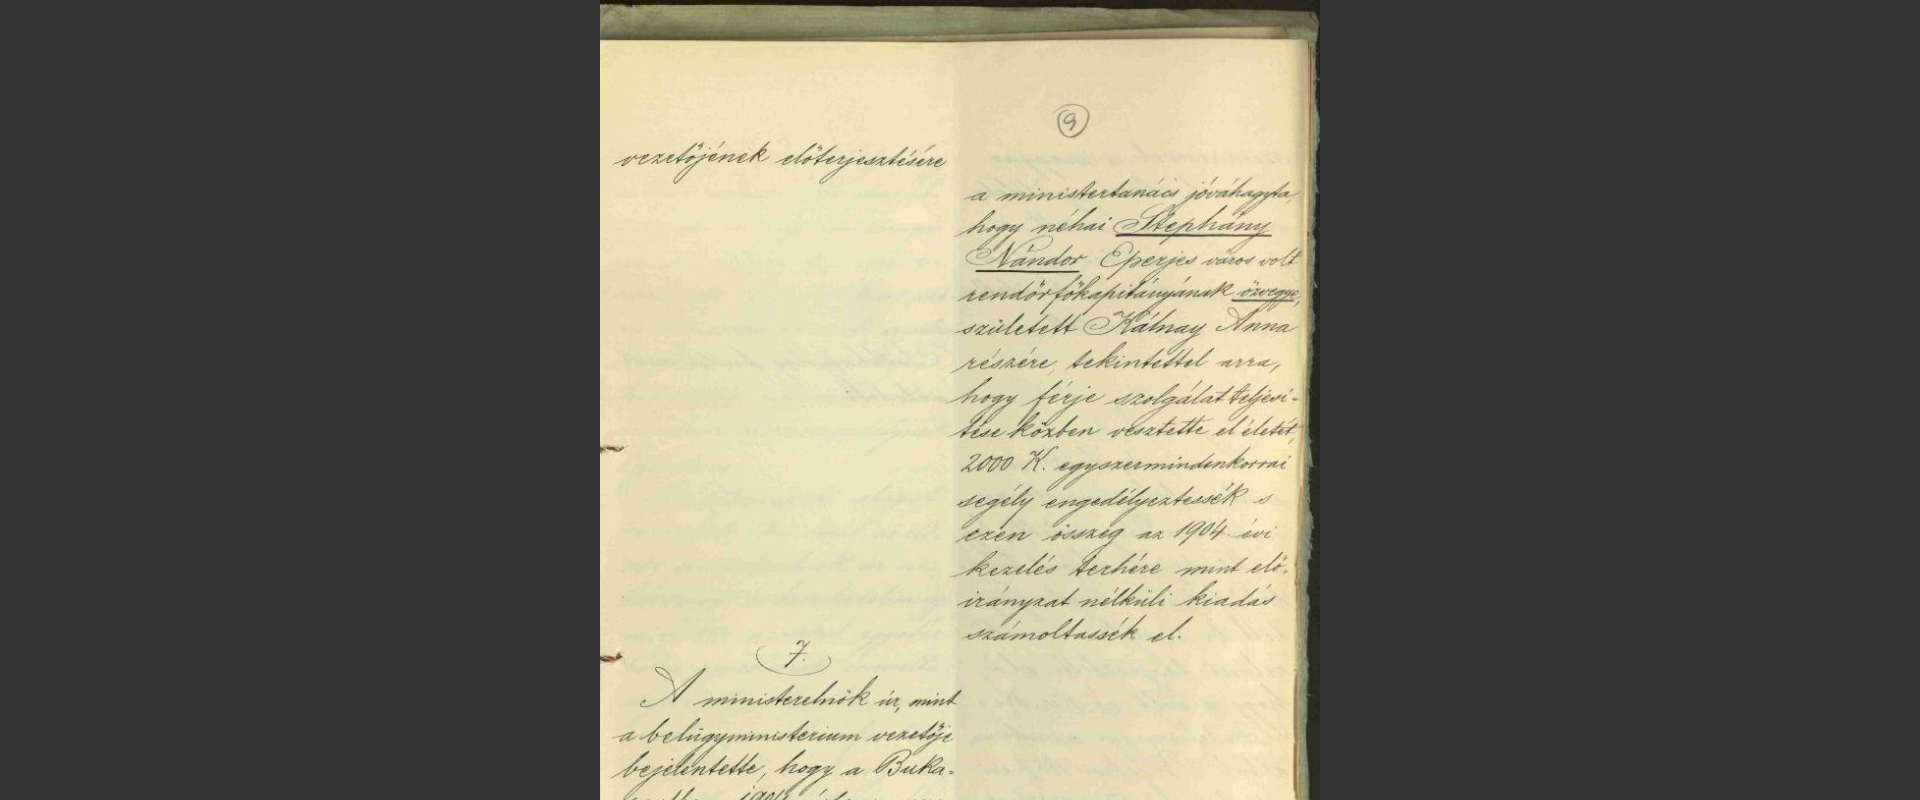 9
vezetőjének előterjesztésére
a ministertanács jóváhagyta,
hogy néhai Stephány
Nándor Eperjes város volt
rendőrfőkapitányának özvegye,
született Kálnay Anna
részére, tekintettel arra,
hogy férje szolgálat teljesí-
tése közben vesztette el életét,
2000 K. egyszermindenkorrai
segély engedélyeztessék s
ezen összeg az 1904. évi
kezelés terhére mint elő-
irányzat nélküli kiadás
számoltassék el.
7.
A ministerelnök úr, mint
a belügyministerium vezetője
bejelentette, hogy a Buka-